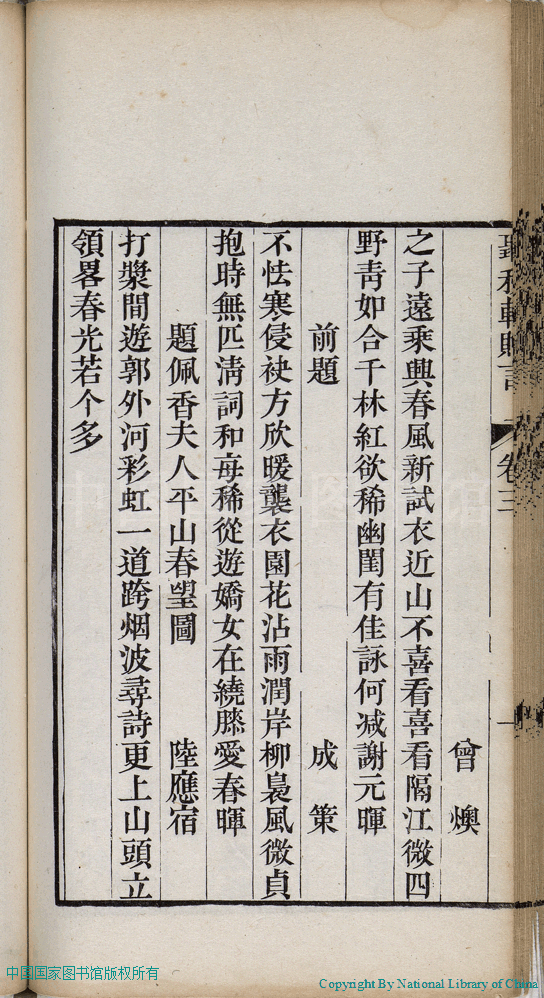 曾燠
之子遠乘興春風新試衣近山不喜看喜看隔江微四
野青如合千林紅欲稀幽閨有佳詠何减謝元暉
前題 成策
不怯寒侵袂方欣暖襲衣園花沾雨潤岸柳裊風微貞
抱時無匹淸詞和每稀從遊嬌女在繞膝愛春暉
題佩香夫人平山春望圖 陸應宿
打漿間遊郭外河彩虹一道跨烟波尋詩更上山頭立
領畧春光若个多
卷三
中国国家图书馆版权所有
Copyright By National Library of China